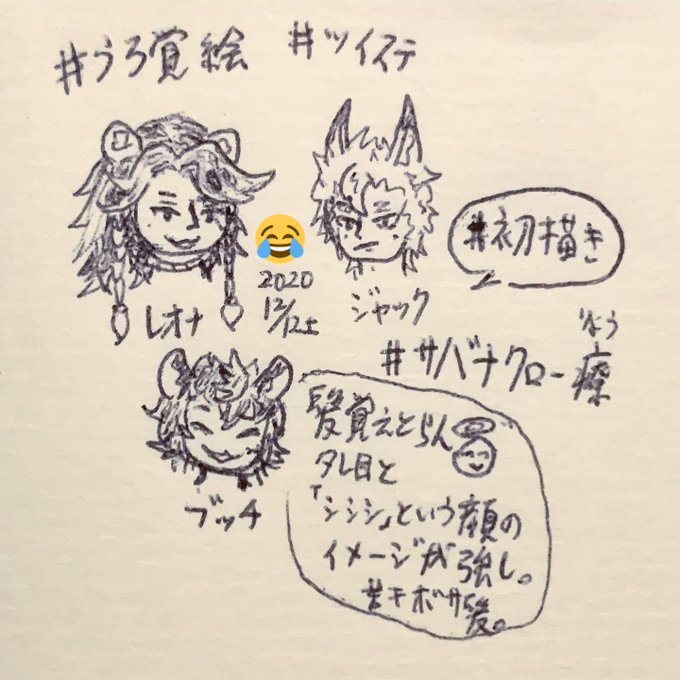 #うろ覚絵 #ツイステ
レオナ
2020
12/12土
ジャック
#初描き
#サバナクロー療
りょう
ブッチ
髪覚えとらん
タレ目と
「シシシ」という顔の
イメージが強し。
若干ボサ髪。